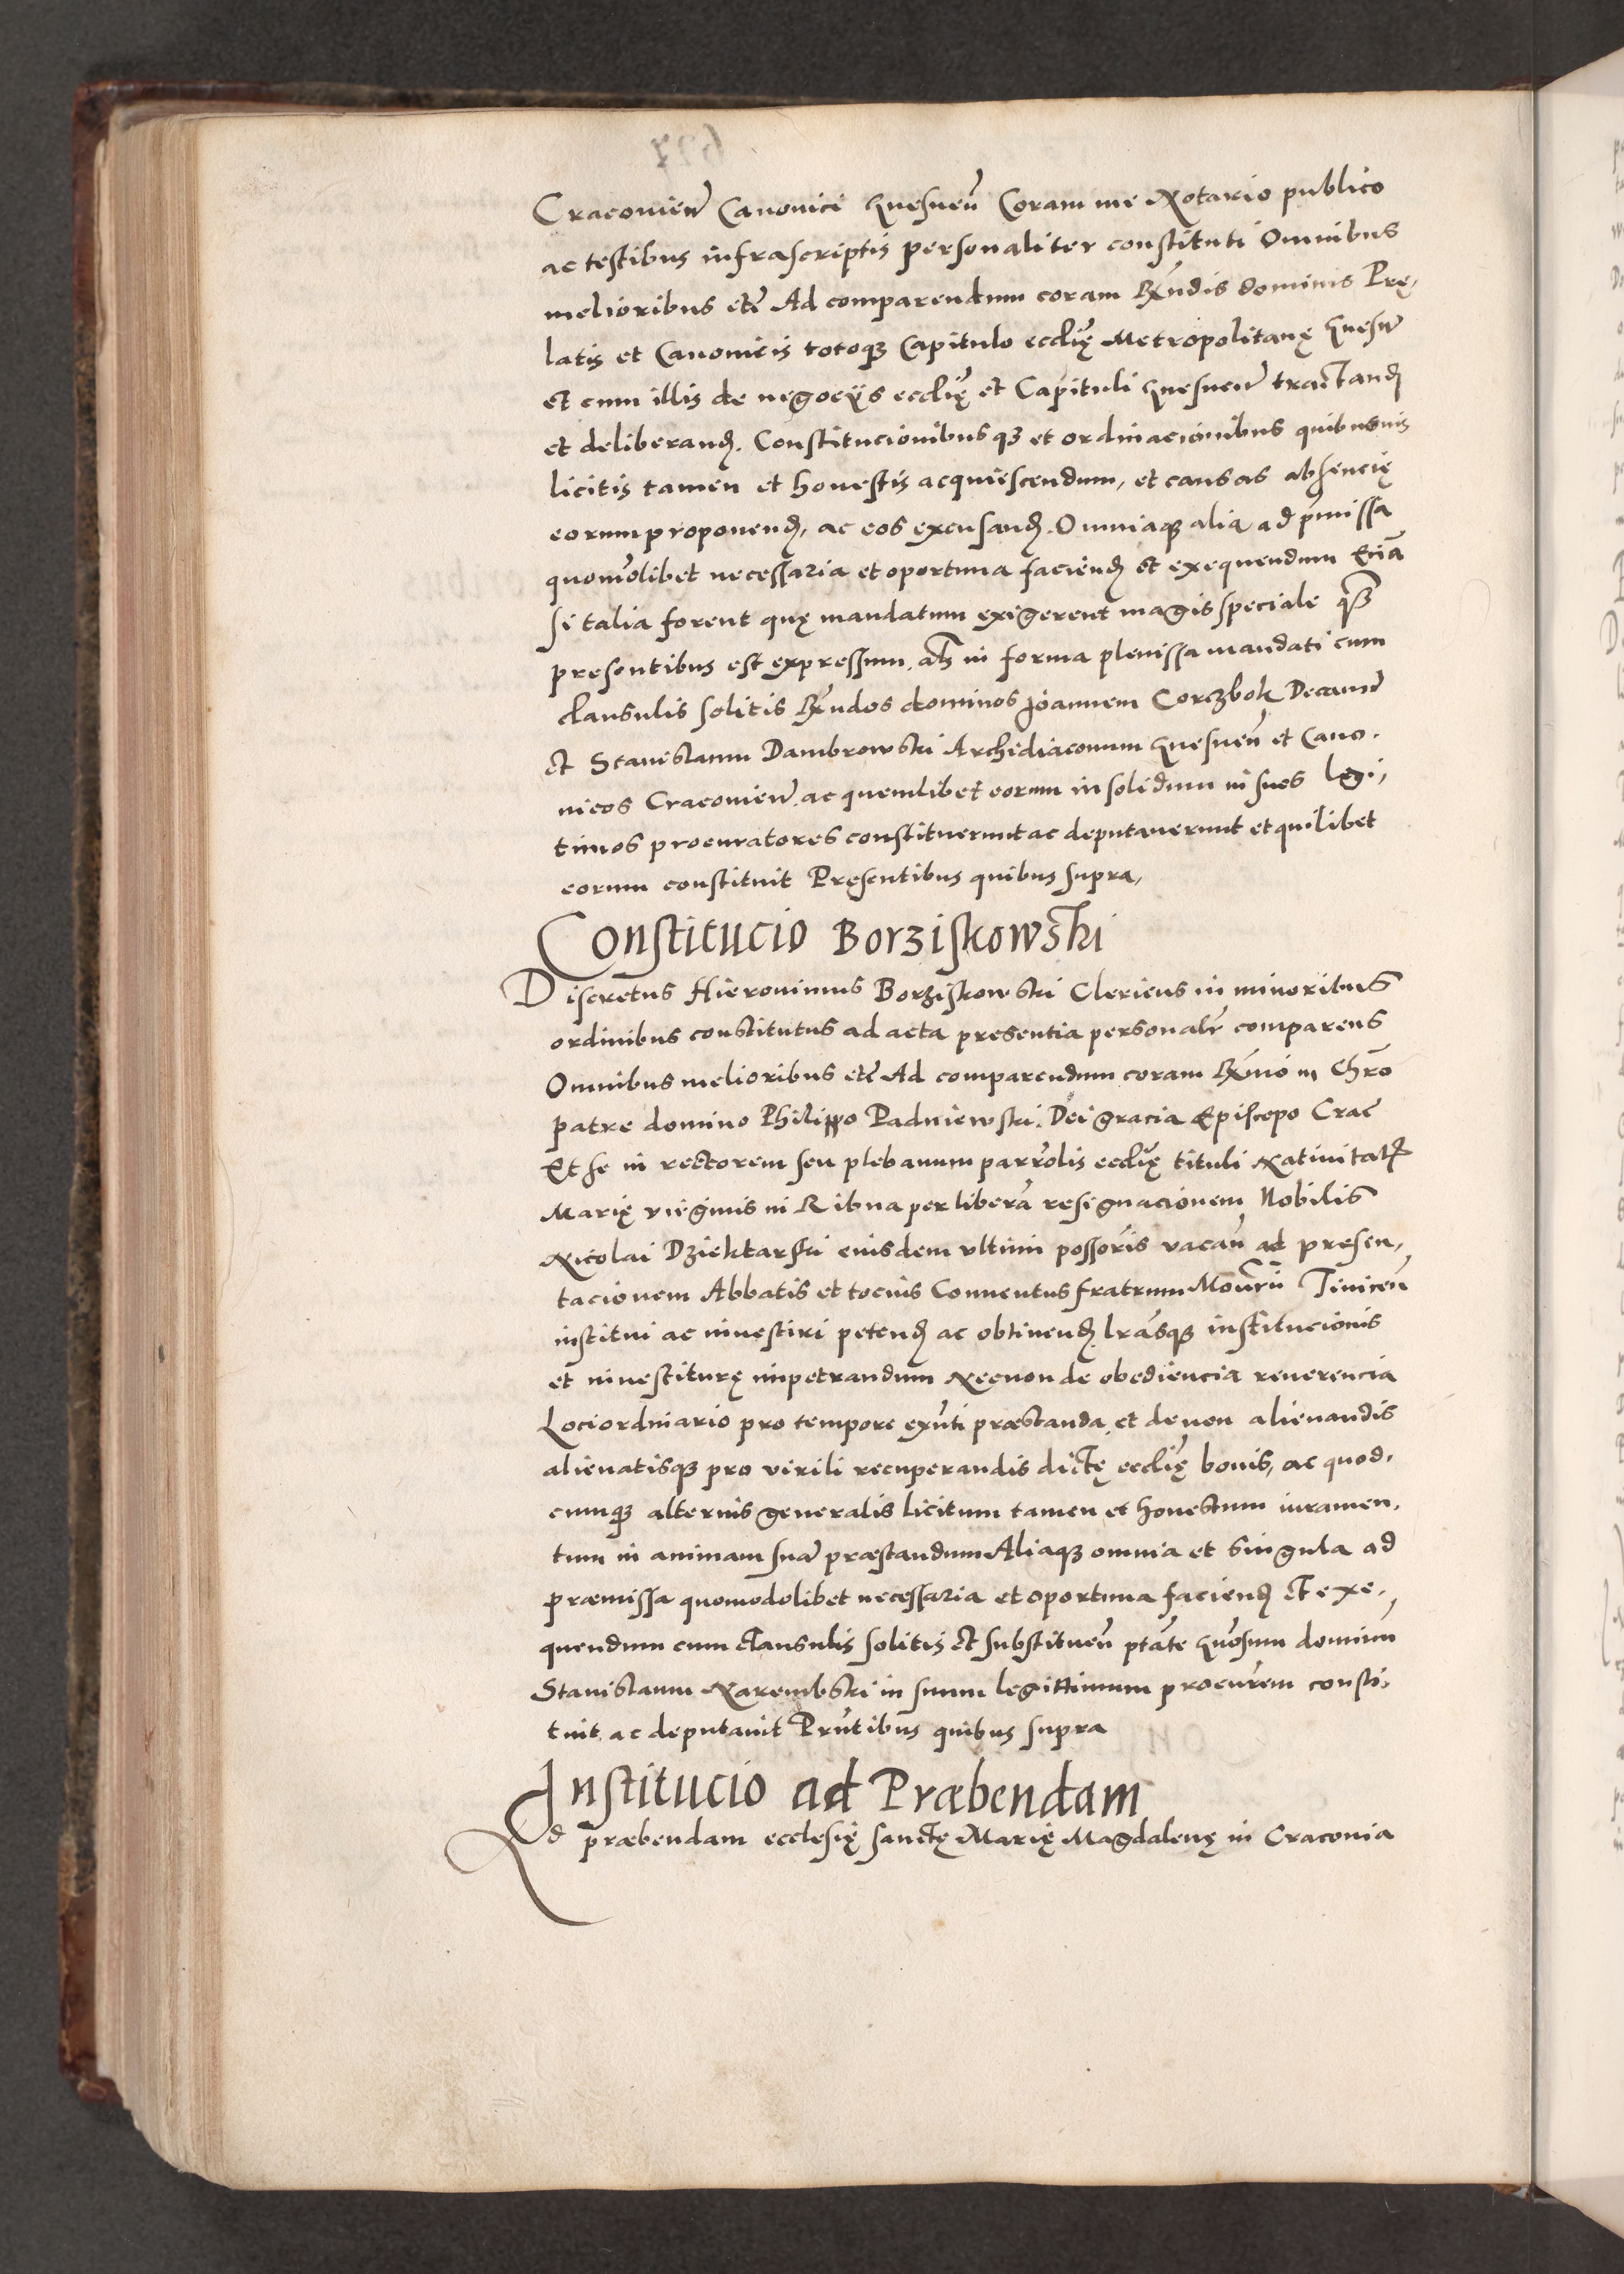 Cracovien̄ Canonici Gnesnen̄ Coram me Notario publico
ac testibus infrascriptis personaliter constituti Omnibus
melioribus etc̄ Ad comparendum coram Rn̄dis dominis Prę,
latis et Canonicis totoq3 Capitulo ecclię̄ Metropolitanę Gnesn̄
et cum illis de negocÿs ecclię̄ et Capituli Gnesnen̄ tractand̨
et deliberand̨. Constitucionibus q3 et ordinacionibus quibusuis
licitis tamen et honestis acquiescendum, et causas absencię
eorum proponend̨, ac eos excusand̨. Omniaq3 alia ad p̄missa
quomo͞libet necessaria et oportuna faciend̨ et exequendum Eciā
si talia forent quę mandatum exigerent magis speciale q̄3
presentibus est expressum, als̄ in forma plenissa mandati cum
clausulis solitis Rn̄dos dominos Joannem Corczbok Decanū
et Stanislaum Dambrowski Archidiaconum Gnesnen̄ et Cano.
nicos Cracovien̄. ac quemlibet eorum insolidum in suos legi,
timos procuratores constituerunt ac deputauerunt et quilibet
eorum constituit Pręsentibus quibus supra,
Constitucio Borziskowski
Discretus Hieronimus Borziskowski Clericus in minoribus
ordinibus constitutus ad acta presentia personalr̄ comparens
Omnibus melioribus etc̄ Ad comparendum coram Rm̄o in Chrō
patre domino Philippo Padniewski. Dei gracia Episcopo Crac̄
Et se in rectorem seu plebanum parro͞lis ecclię̄ tituli Natiuitat̄
Marię virginis in Ribna per liberā resignacionem Nobilis
Nicolai Dziektarski eiusdem vltimi posso͞ris vacan̄ ad presen,
tacionem Abbatis et tocius Conuentus fratrum Mon̄rii Tinicen̄
institui ac inuestiri petend̨ ac obtinend̨ lrā̄sq3 institucionis
et inuestiturę impetrandum Necnon de obediencia reuerencia
Lociordinario pro tempore exn̄ti præstanda, et de non alienandis
alienatisq3 pro virili recuperandis dictę ecclię̄ bonis, ac quod,
cumq3 alterius generalis licitum tamen et honestum iuramen,
tum in animam suā præstandum Aliaq3 omnia et singula ad
præmissa quomodolibet necessaria et oportuna faciend̨ et exe,
quendum cum clausulis solitis et substituen̄ ptā̄te Gn̄osum dominū
Stanislaum Narembski in suum legittimum procurem̄ consti,
tuit ac deputauit Prn̄tibus quibus supra
Institucio ad Præbendam
Ad præbendam ecclesię sanctę Marię Magdalenę in Craconia